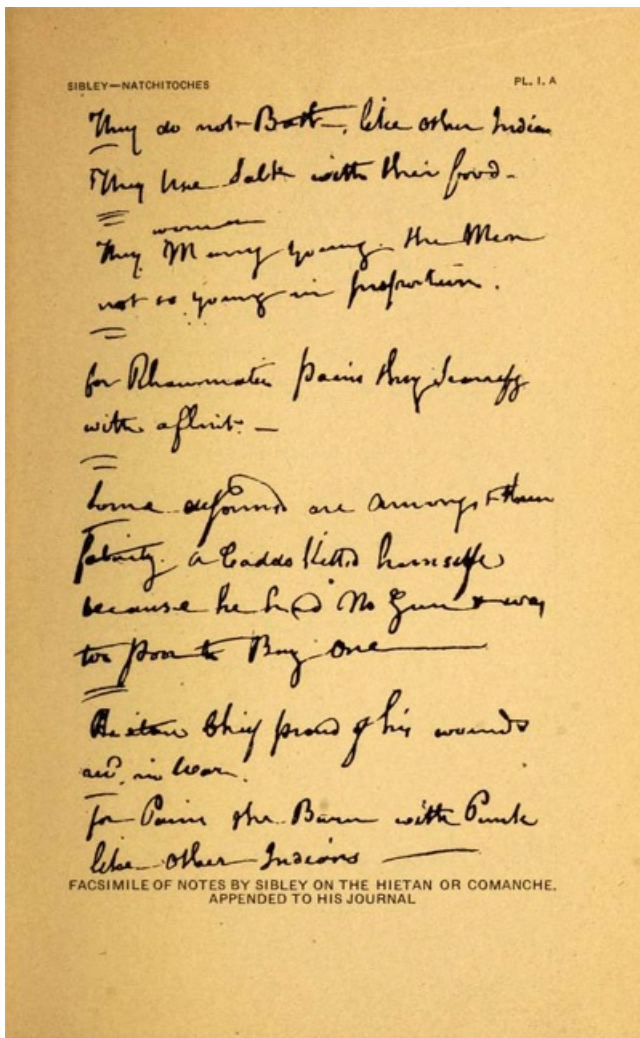 SIBLEY—NATCHITOCHES PL. I. A
They do not like other Indian
They Use Salt with their food-
women
They Marry young. the Men
not so young in proportion.
for pains they
with a flint. —
Some are amongst them
a Caddo Killed himself
because he had No Gun & was
too poor to Buy One
Hietan Chief proud of his wounds
in War.
for Pains the Burn with Punk
like other Indians —
FACSIMILE OF NOTES BY SIBLEY ON THE HIETAN OR COMANCHE.
APPENDED TO HIS JOURNAL